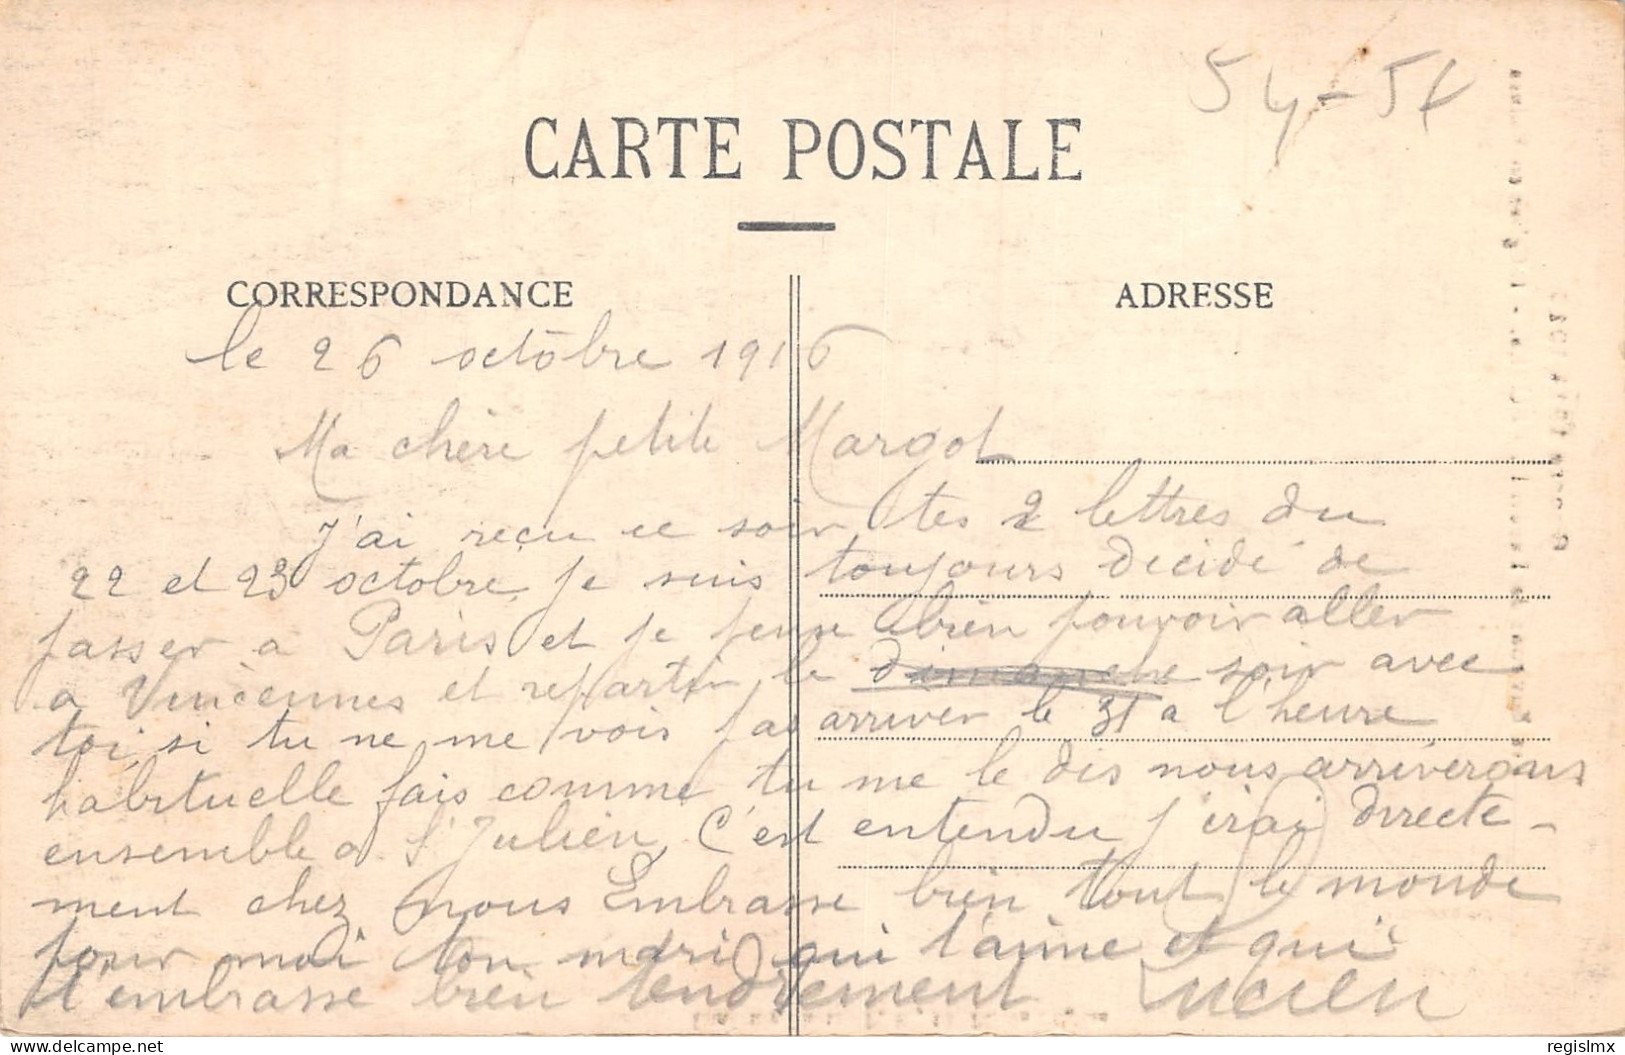 54-54
CARTE POSTALE
CORRESPONDANCE
ADRESSE
le 26 octobre 1916
Ma chère petite Margot
J'ai reçu ce soir tes 2 lettres du
22 et 23 octobre, je suis toujours décidé de
passer a Paris et je pense bien pouvoir aller
a Vincennes et repartir le dimanche soir avec
toi, si tu ne me vois pas arriver le 31 a l'heure
habituelle fais comme tu me le dis nous arriverons
ensemble a St Julien, C'est entendu j'irai directe-
ment chez nous Embrasse bien tout le monde
pour moi ton mari qui t'aime et qui
t'embrasse bien tendrement Lucien
delcampe.net
regislmx